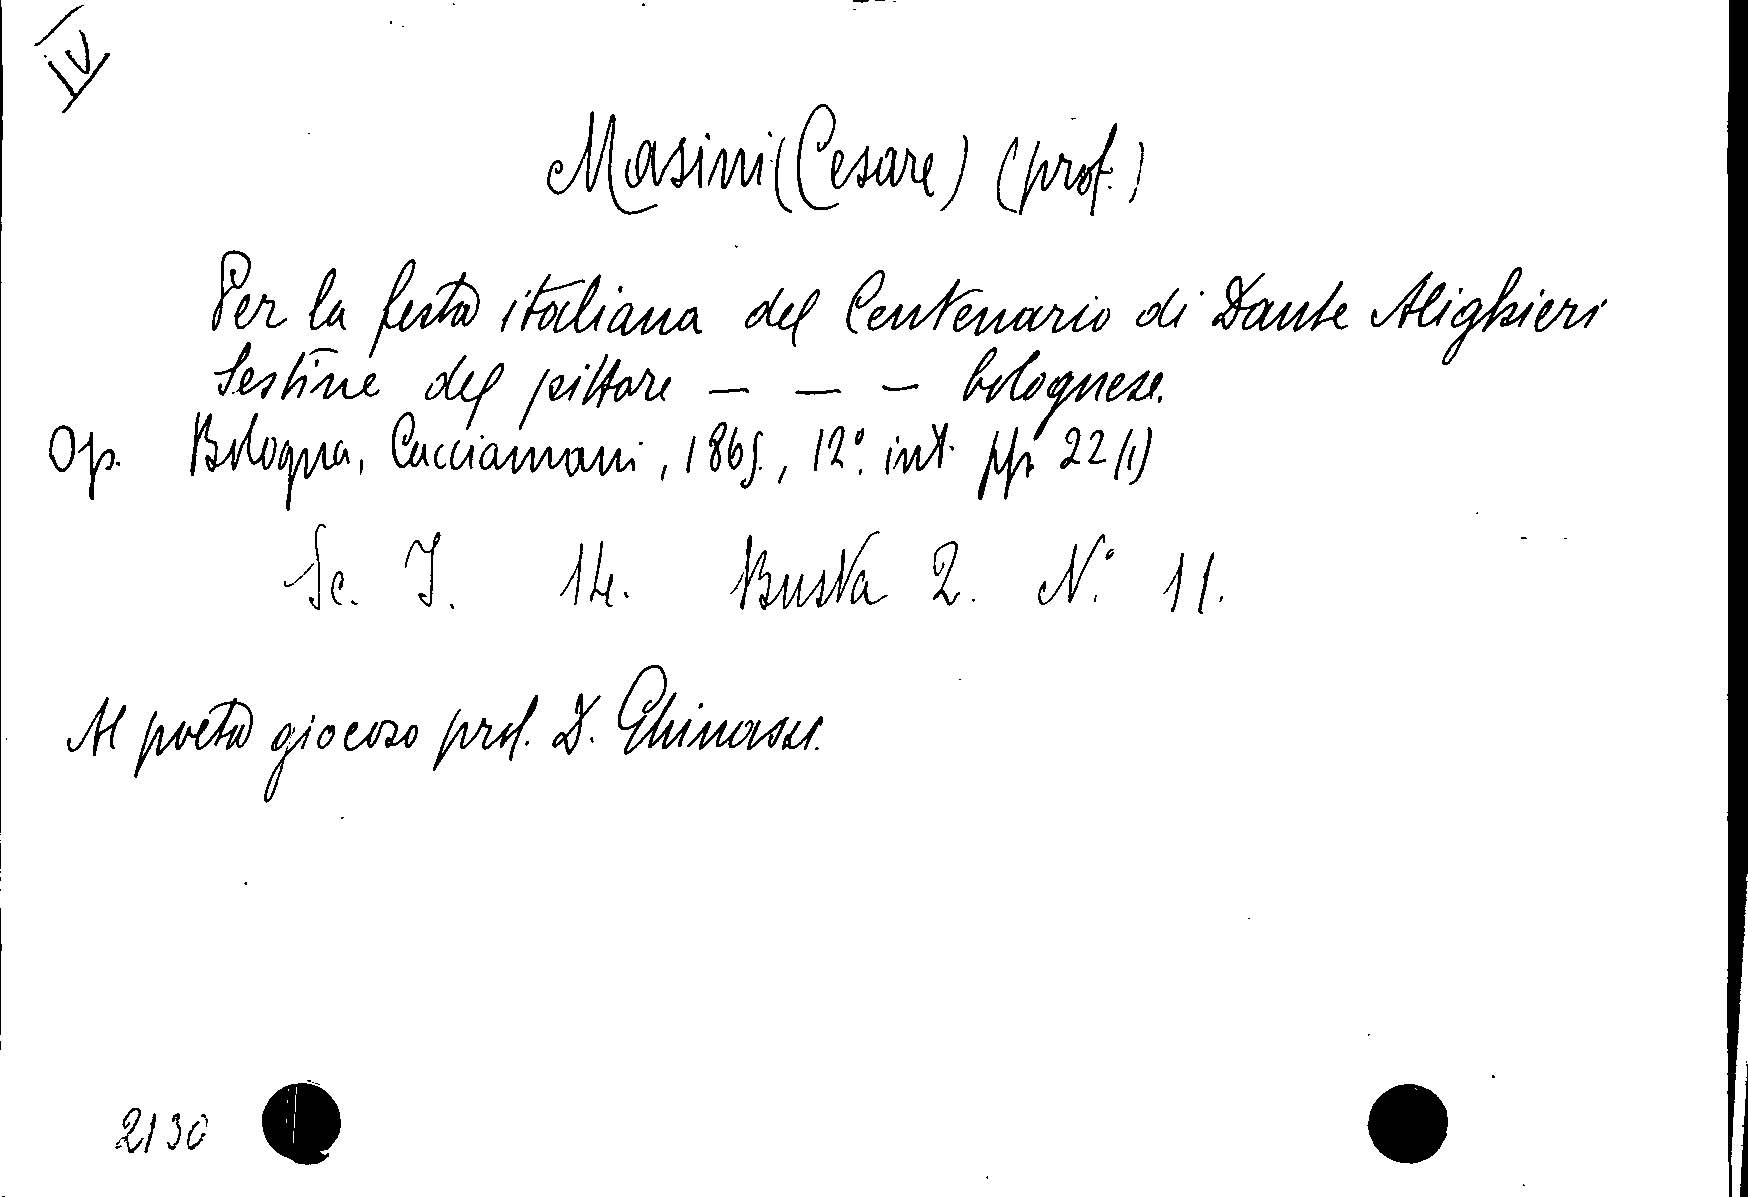 IV
Masini (Cesare) (prof.)
Per la festa italiana del Centenario di Dante Alighieri
Sestine del pittore — — — bolognese.
Op. Bologna, Cacciamani, 1865., 12°. int. pp. 22 (1)
Sc. I. 14. Busta 2. N.° 11.
Al poeta giocoso prof. D. Ghinassi.
2130